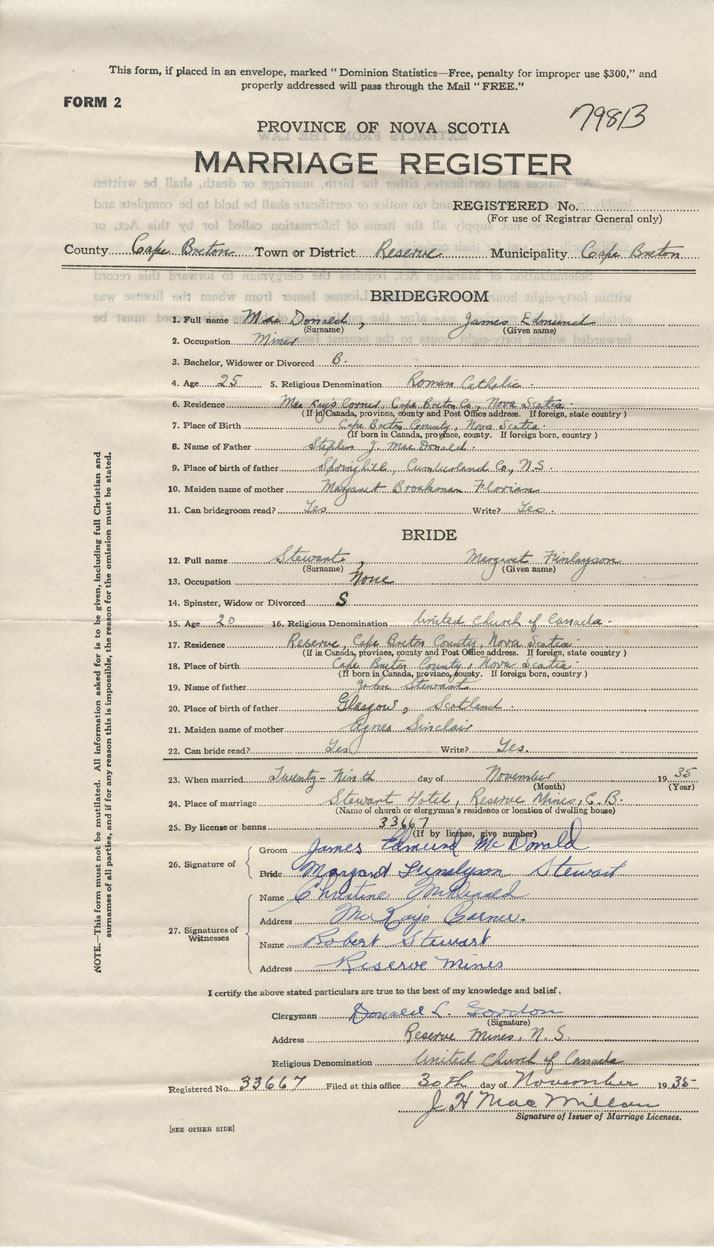 This form, if placed in an envelope, marked "Dominion Statistics—Free, penalty for improper use $300," and
properly addressed will pass through the Mail "FREE."
FORM 2
79813
PROVINCE OF NOVA SCOTIA
MARRIAGE REGISTER
REGISTERED No.
(For use of Registrar General only)
County Cape Breton Town or District Reserve Municipality Cape Breton
BRIDEGROOM
1. Full name Mac Donald, James Edmund
(Surname) (Given name)
2. Occupation Miner
3. Bachelor, Widower or Divorced B.
4. Age 25 5. Religious Denomination Roman Catholic.
6. Residence MacKay's Corner, Cape Breton Co., Nova Scotia.
(If in Canada, province, county and Post Office address. If foreign, state country )
7. Place of Birth Cape Breton County, Nova Scotia.
(If born in Canada, province, county. If foreign born, country )
8. Name of Father Stephen J. MacDonald.
9. Place of birth of father Springhill, Cumberland Co., N.S.
10. Maiden name of mother Margaret Florian
11. Can bridegroom read? Yes Write? Yes.
BRIDE
12. Full name Stewart, Margaret Finlayson
(Surname) (Given name)
13. Occupation None
14. Spinster, Widow or Divorced S
15. Age 20 16. Religious Denomination United Church of Canada.
17. Residence Reserve, Cape Breton County, Nova Scotia.
(If in Canada, province, county and Post Office address. If foreign, state country )
18. Place of birth Cape Breton County, Nova Scotia.
(If born in Canada, province, county. If foreign born, country )
19. Name of father John Stewart
20. Place of birth of father Glasgow, Scotland.
21. Maiden name of mother Agnes Sinclair
22. Can bride read? Yes Write? Yes.
23. When married Twenty-Ninth day of November 1935
(Month) (Year)
24. Place of marriage Stewart Hotel, Reserve Mines, C.B.
(Name of church or clergyman's residence or location of dwelling house)
25. By license or banns 33667
(If by license, give number)
26. Signature of
Groom James Edmund McDonald
Bride Margaret Finlayson Stewart
27. Signatures of Witnesses
Name Christine McDonald
Address McKay's Corner.
Name Robert Stewart
Address Reserve Mines
I certify the above stated particulars are true to the best of my knowledge and belief.
Clergyman Donald L. Gordon
(Signature)
Address Reserve Mines, N.S.
Religious Denomination United Church of Canada
Registered No. 33667 Filed at this office 30th day of November 1935
J H MacMillan
Signature of Issuer of Marriage Licenses.
[SEE OTHER SIDE]
NOTE.—This form must not be mutilated. All information asked for is to be given, including full Christian and
surnames of all parties, and if for any reason this is impossible, the reason for the omission must be stated.